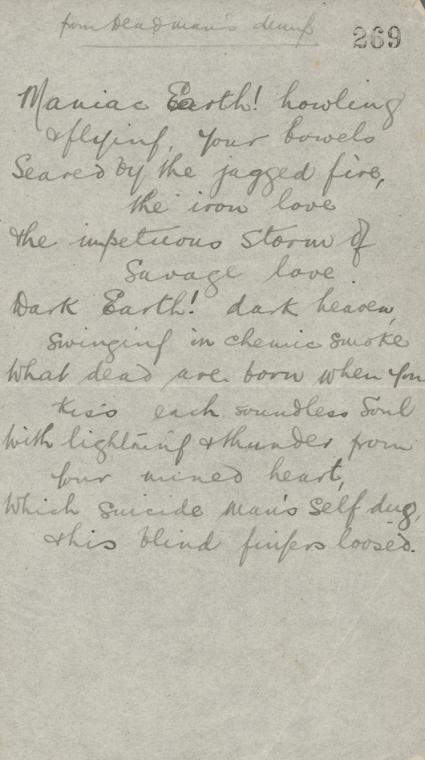 from Dead man's dump
269
Maniac Earth! howling
& flying, your bowels
Seared by the jagged fire,
the iron love
the impetuous storm of
Savage love.
Dark Earth! dark heaven,
swinging in chemic smoke
What dead are born when you
kiss each soundless Soul
With lightning & thunder from
your mined heart,
Which suicide man's self dug,
& his blind fingers loosed.